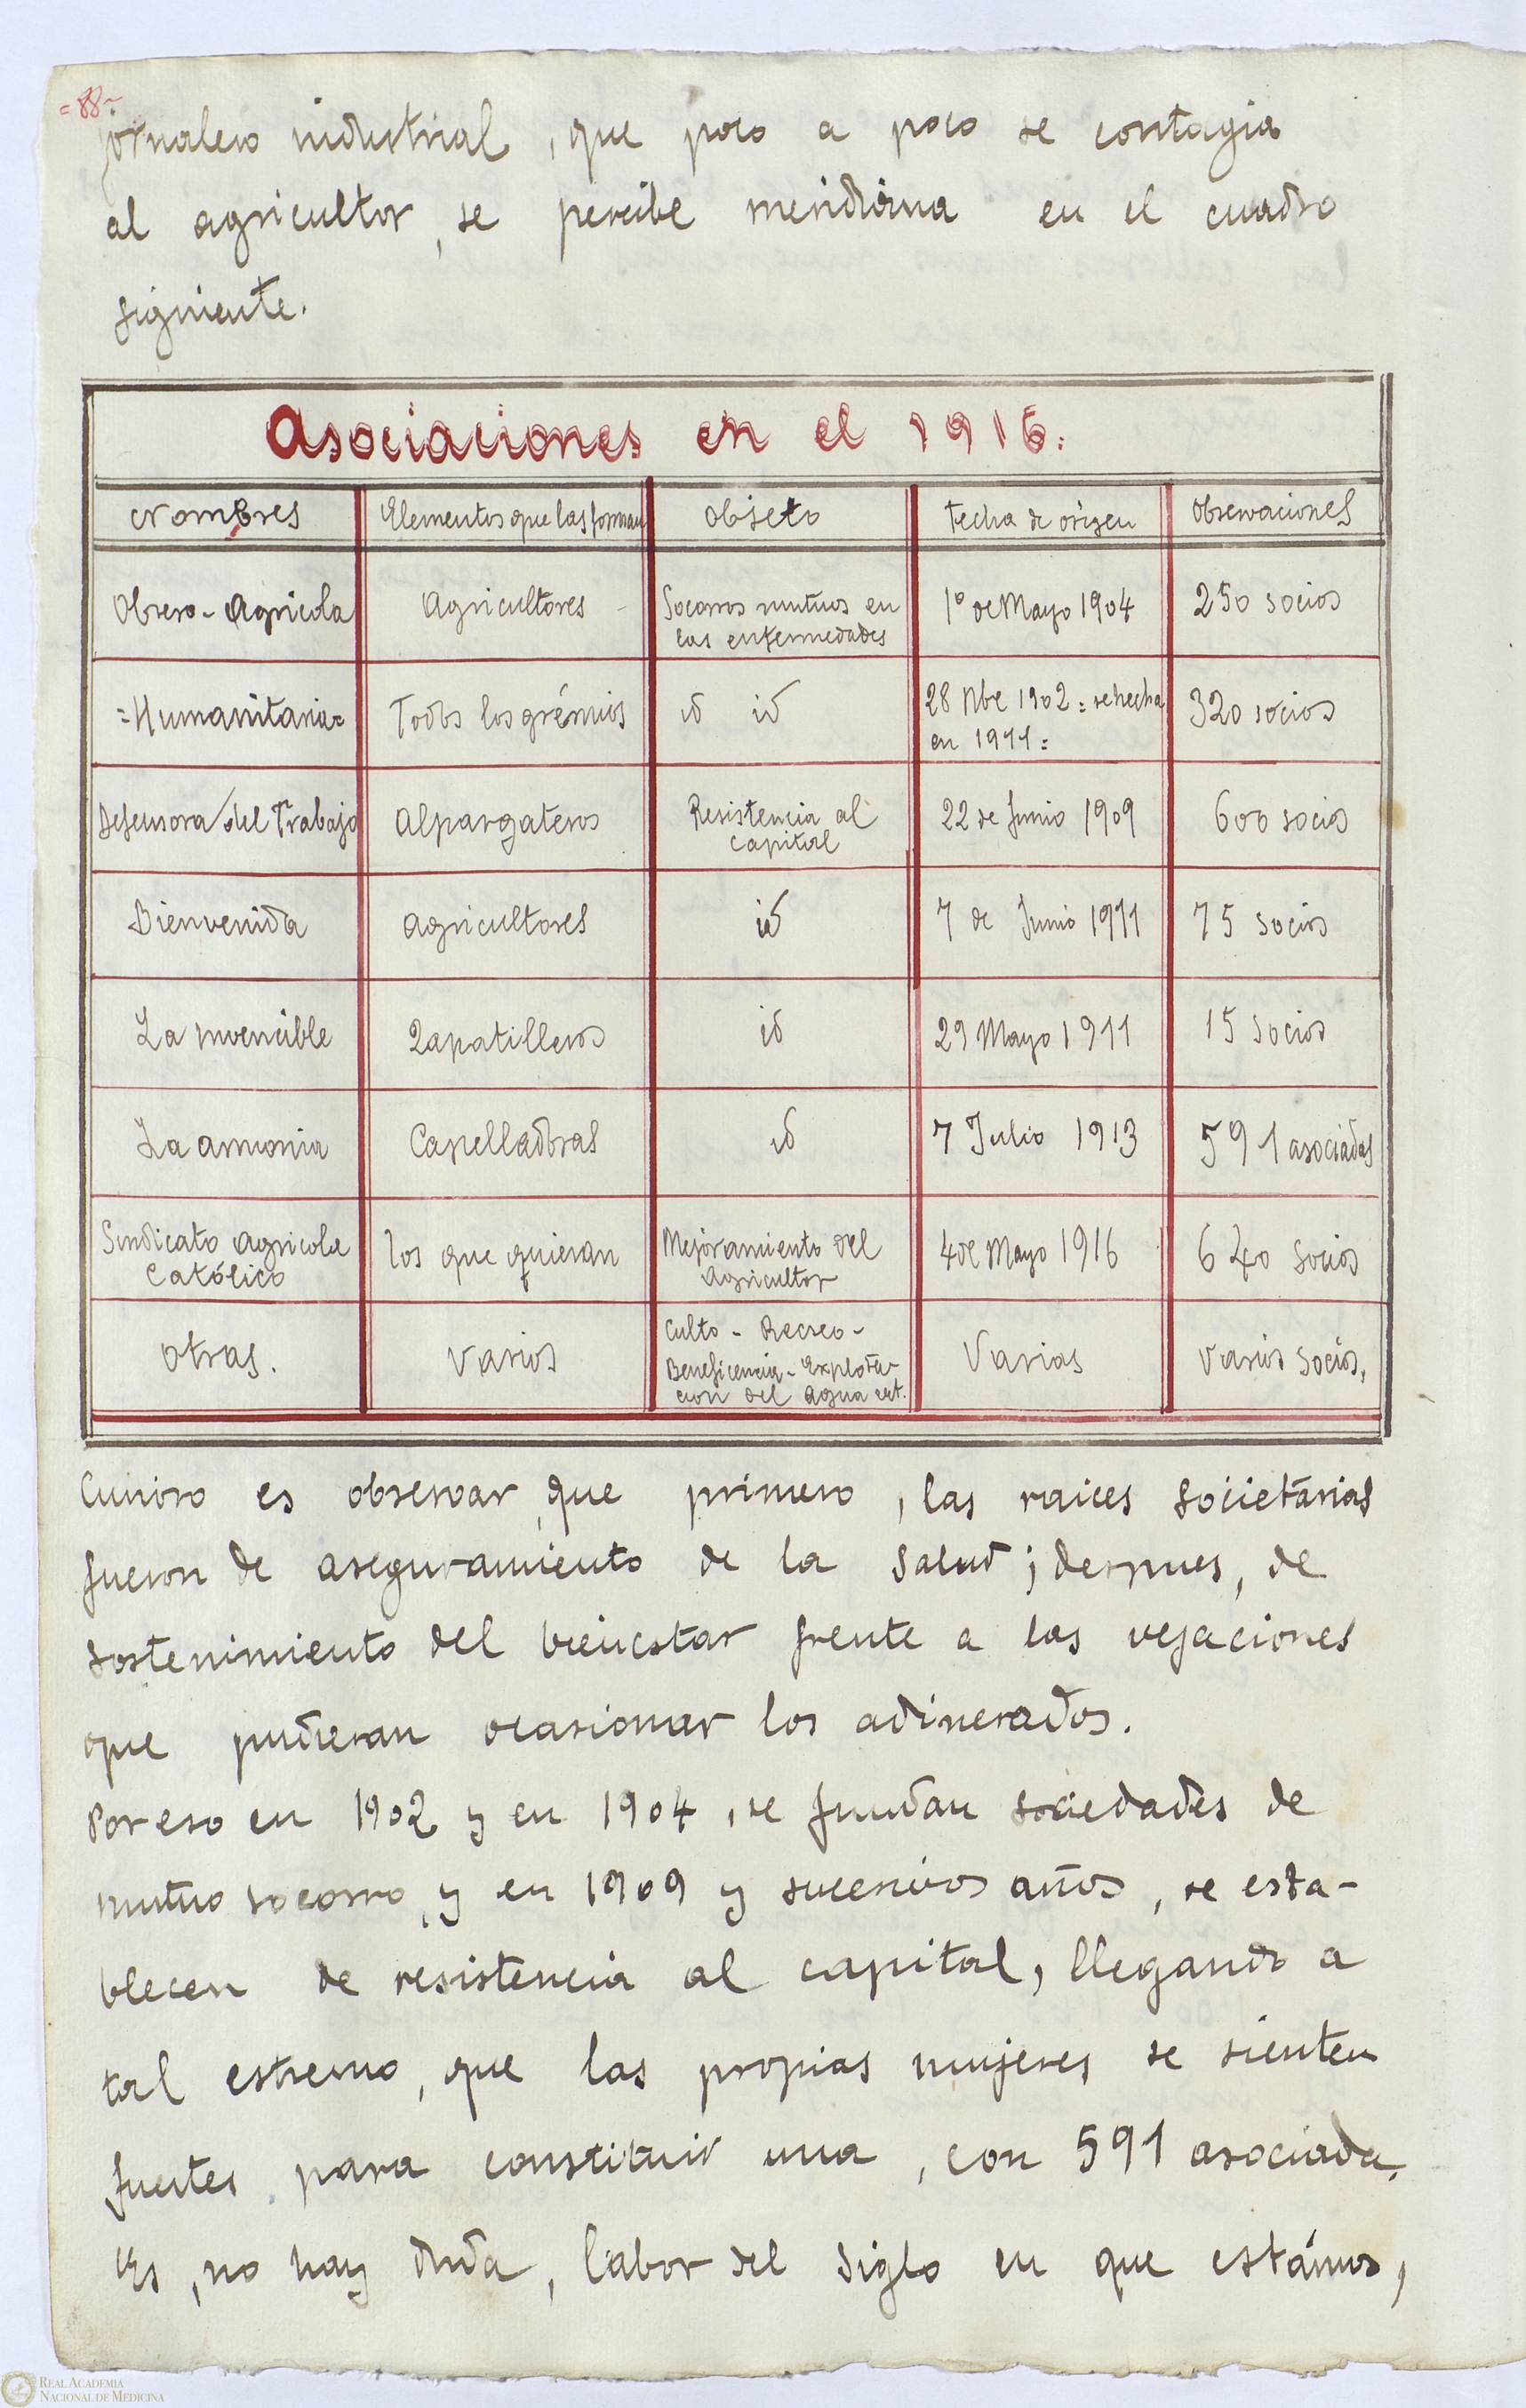 =88=
jornalero industrial, que poco a poco se contagia
al agricultor, se percibe meridiana en el cuadro
siguiente.
Asociaciones en el 1916.
Nombres Elementos que las forman Objeto Fecha de orígen Observaciones
Obrero-Agricola Agricultores Socorros mutuos en las enfermedades 1º de Mayo 1904 250 socios
=Humanitaria= Todos los grémios id id 28 Nbe 1902 = rehecha en 1911 = 320 socios
Defensora del Trabajo Alpargateros Resistencia al capital 22 de Junio 1909 600 socios
Bienvenida agricultores id 7 de Junio 1911 75 socios
La invencible Zapatilleros id 29 Mayo 1911 15 socios
La armonia Capelladoras id 7 Julio 1913 591 asociadas
Sindicato Agricola Católico los que quieran Mejoramiento del Agricultor 4 de Mayo 1916 640 socios
Otras. Varios Culto - Recreo - Beneficencia - Explota-cion del Agua ect. Varias Varios socios.
Curioso es observar, que primero, las raices societarias
fueron de aseguramiento de la salud; despues, de
sostenimiento del bienestar frente a las vejaciones
que pudieran ocasionar los adinerados.
Por eso en 1902 y en 1904, se fundan sociedades de
mutuo socorro, y en 1909 y sucesivos años, se esta-
blecen de resistencia al capital, llegando a
tal estremo, que las propias mujeres se sienten
fuertes para constituir una, con 591 asociadas.
Es, no hay duda, labor del siglo en que estámos,
REAL ACADEMIA
NACIONAL DE MEDICINA